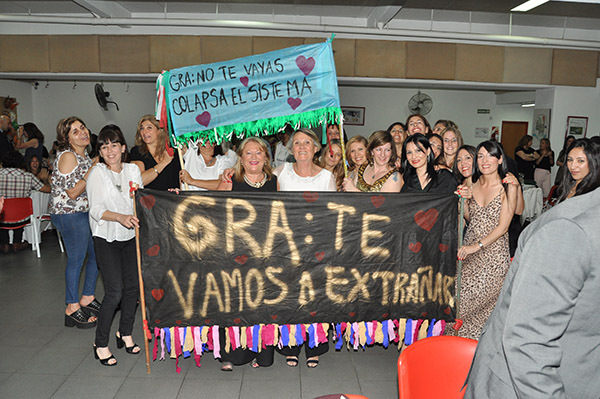 GRA: NO TE VAYAS
COLAPSA EL SISTEMA
GRA: TE
VAMOS A EXTRAÑAR